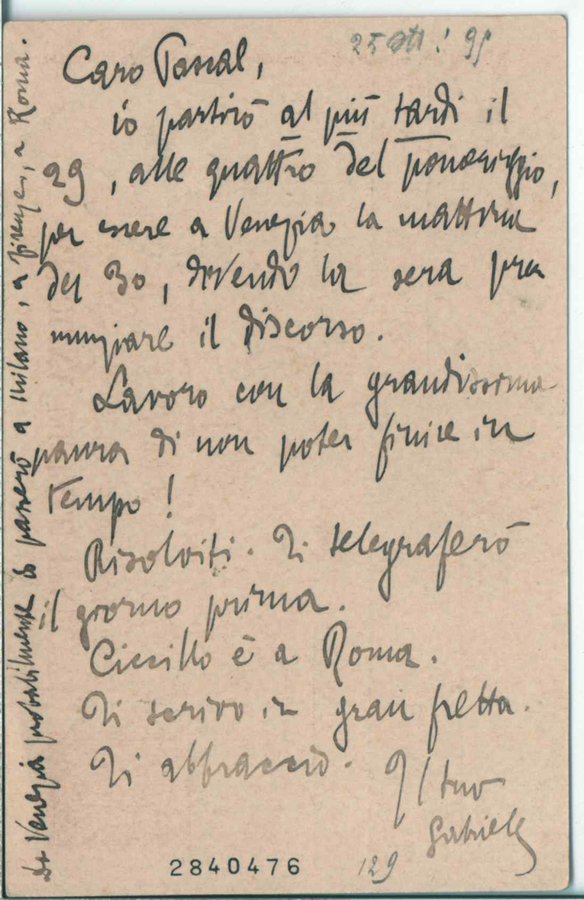 25 ott. '95
Caro Pascal,
io partirò al più tardi il
29, alle quattro del pomeriggio,
per essere a Venezia la mattina
del 30, dovendo la sera pro
nunziare il discorso.
Lavoro con la grandissima
paura di non poter finire in
tempo!
Risolviti. Ti telegraferò
il giorno prima.
Ciccillo è a Roma.
Ti scrivo in gran fretta.
Ti abbraccio. Il tuo
Gabriele
Da Venezia probabilmente io passerò a Milano, a Firenze, a Roma.
2840476
129